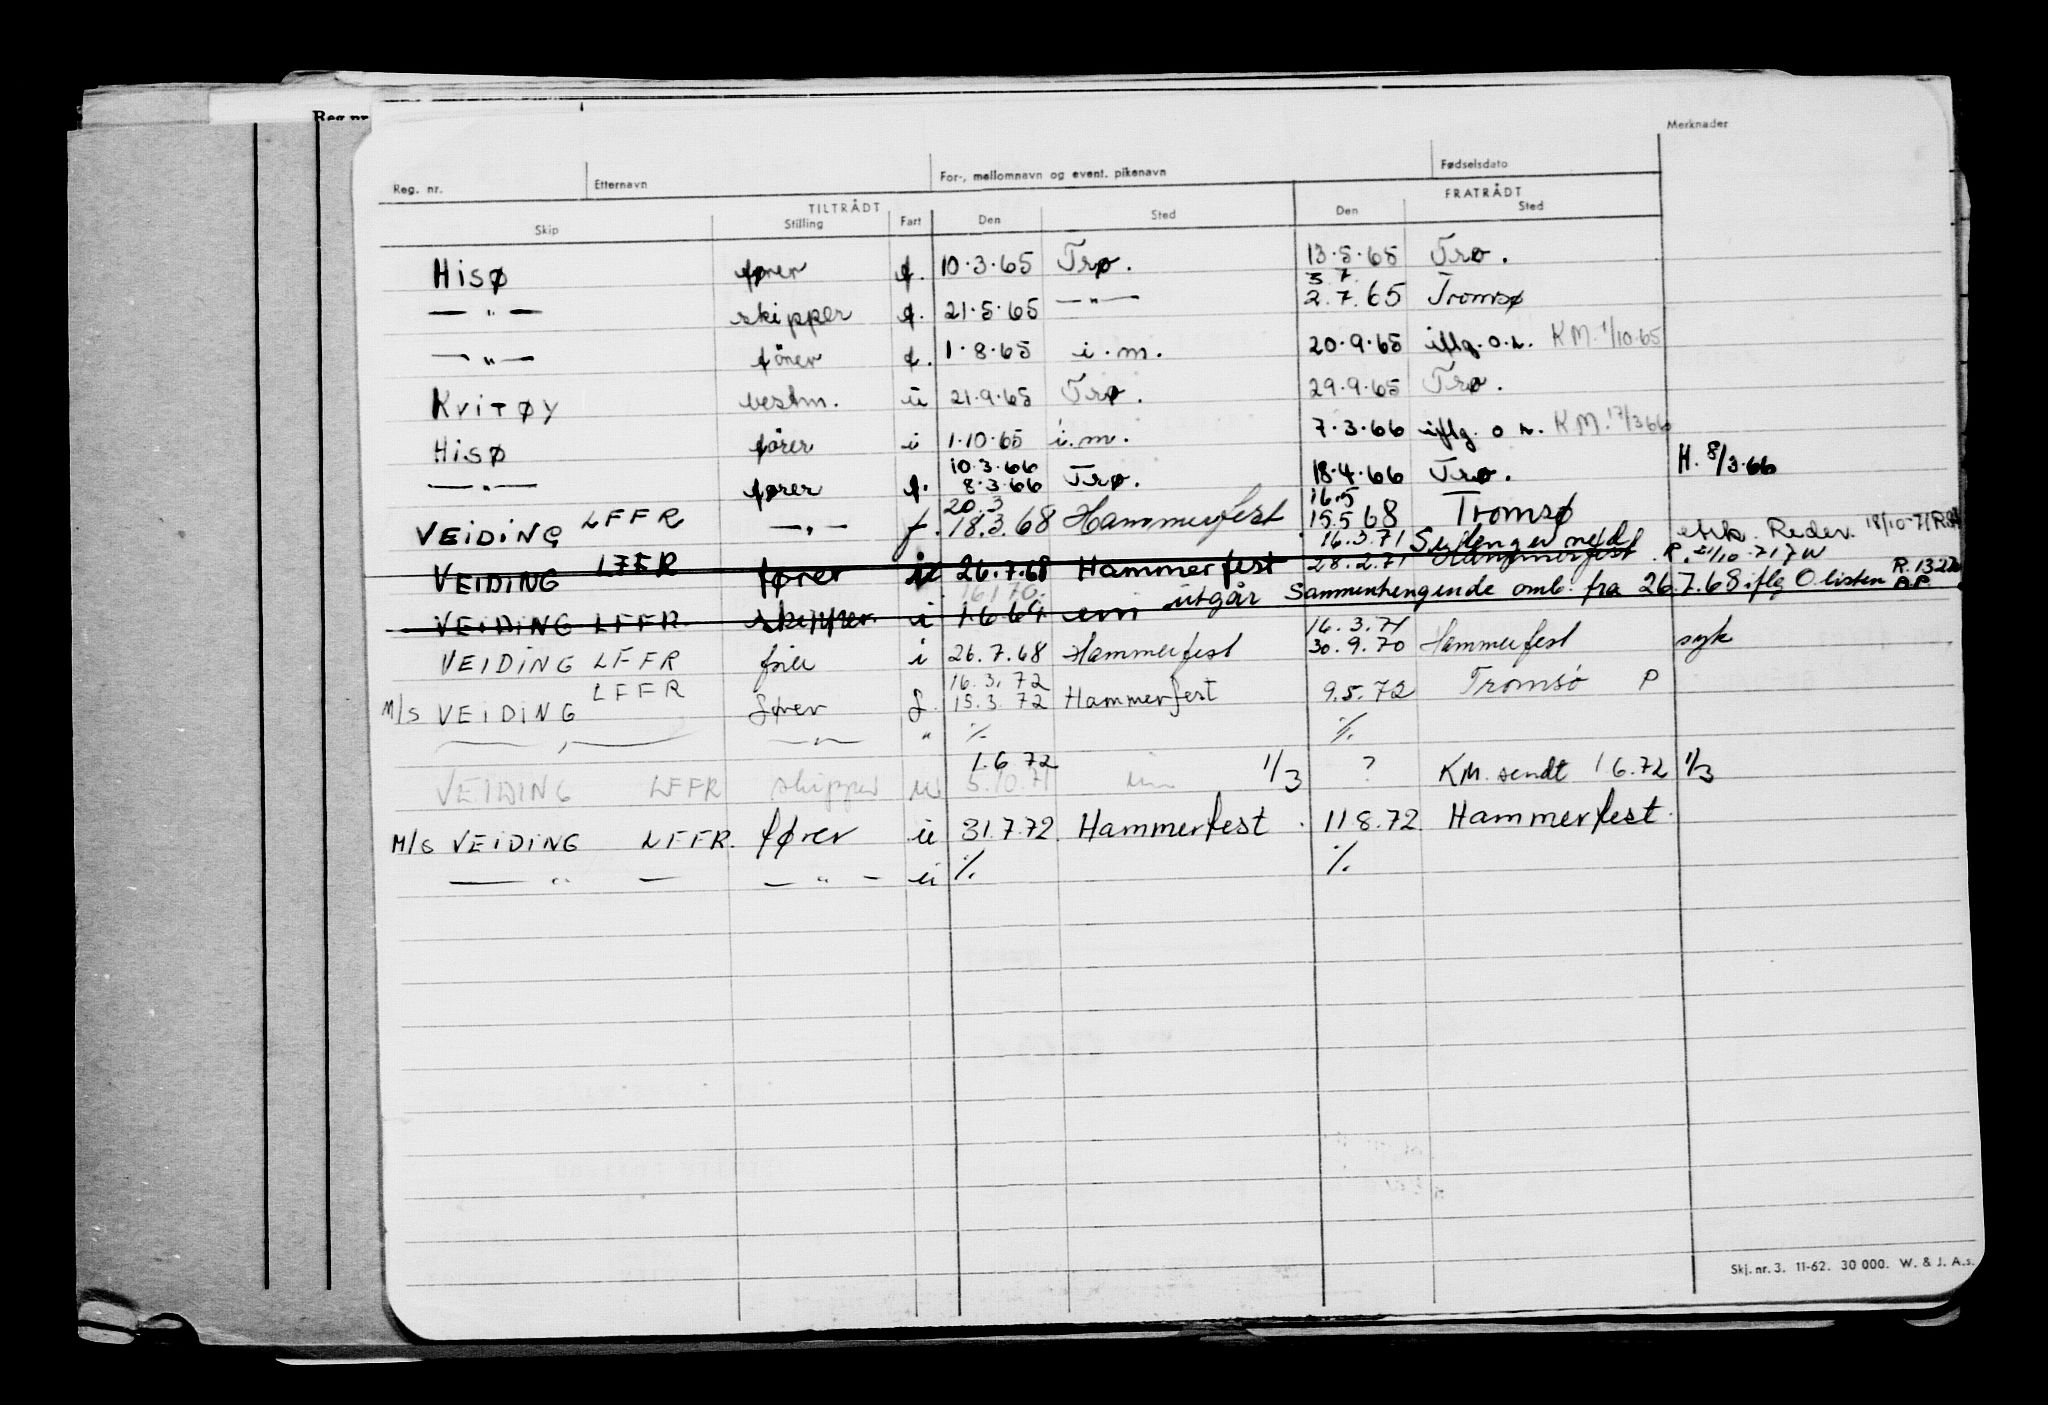 Reg nr.
Merknader
Reg. nr. Etternavn For-, mellomnavn og event. pikenavn Fødselsdato
TILTRÅDT FRATRÅDT
Skip Stilling Fart Den Sted Den Sted
Hisø fører f. 10.3.65 Trø. 13.5.65 Trø.
3.7.
— " — skipper f. 21.5.65 — " — 2.7.65 Tromsø
— " — förer f. 1.8.65 i.m. 20.9.65 iflg. o.r. KM. 1/10.65
Kvitøy bestm. ii 21.9.65 Trø. 29.9.65 Trø.
Hisø förer i 1.10.65 i.m. 7.3.66 iflg. o r. KM. 17/3 66
10.3.66
— " — fører f. 8.3.66 Trø. 18.4.66 Trø. H. 8/3.66
20.3 16.5
VEIDING LFFR — " — f. 18.3.68 Hammerfest 15.5 68 Tromsø
16.3.71 Reder. 18/10-71
VEIDING LFFR fører 26.7.68 Hammerfest 28.2.71 Hammerfest R. 21/10 71
utgår Sammenhengende omb. fra 26.7.68 iflg O listen
VEIDING LFFR skipper i 1.6 64
16.3.71
VEIDING LFFR fører i 26.7.68 Hammerfest 30.9.70 Hammerfest syk
16.3.72
M/S VEIDING LFFR fører f. 15.3.72 Hammerfest 9.5.72 Tromsø P
— " — — " — " %. %.
1.6 72
VEIDING LFFR skipper 5.10.71 1/3 ? KM. sendt 1 6.72 1/3
M/S VEIDING LFFR. fører ii 31.7.72. Hammerfest. 11 8.72. Hammerfest.
— " — — " — ii %. %.
Skj. nr. 3. 11-62. 30 000. W. & J. A.s.